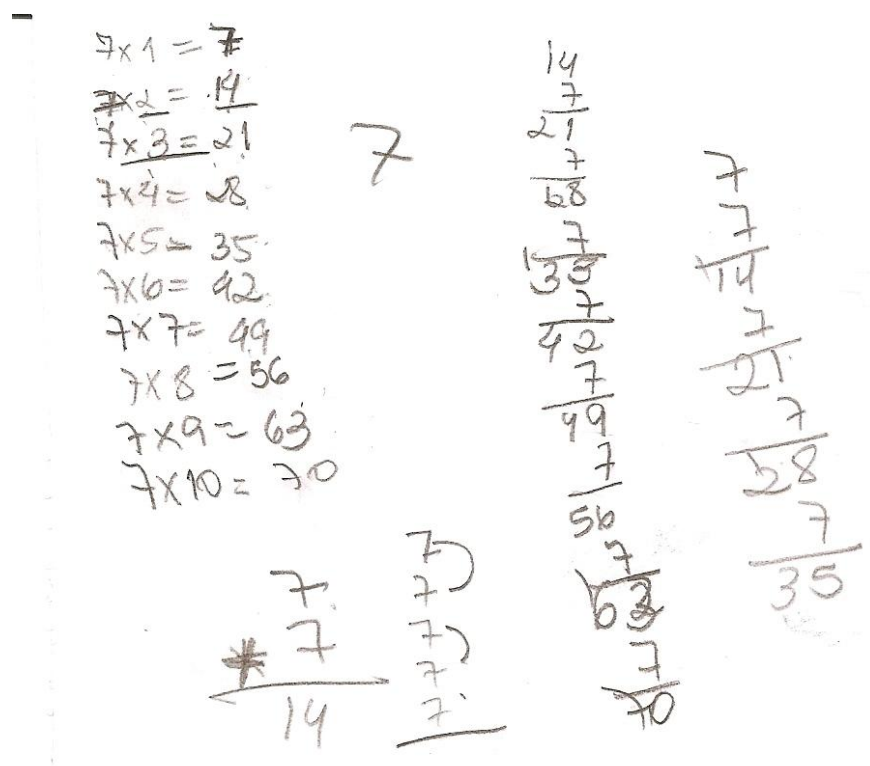 7x1=7
7x2=14
7x3=21
7x4=28
7x5=35
7x6=42
7x7=49
7x8=56
7x9=63
7x10=70
7
14
7
21
7
68
7
35
7
42
7
49
7
56
7
63
7
70
7
7
14
7
21
7
28
7
35
7
+7
14
7
7
7
7
7